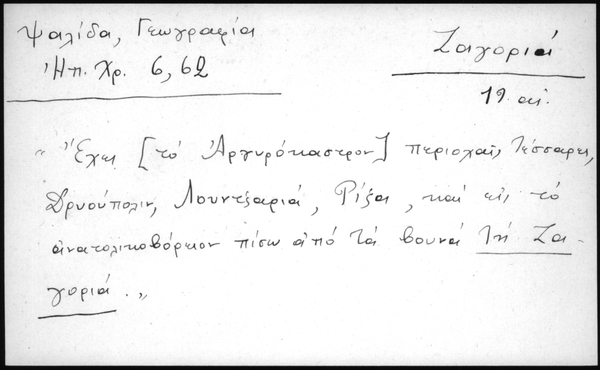 Ψαλίδα, Γεωγραφία
Ἠπ. Χρ. 6, 62
Ζαγοριά
19 αἰ.
"Ἔχει [τὸ Ἀργυρόκαστρον] περιοχαὶς τέσσαρες,
Δρυούπολιν, Λουντζαριά, Ρίζα, καὶ εἰς τὸ
ἀνατολικοβόρειον πίσω ἀπὸ τὰ βουνὰ τὴ Ζα-
γοριά."